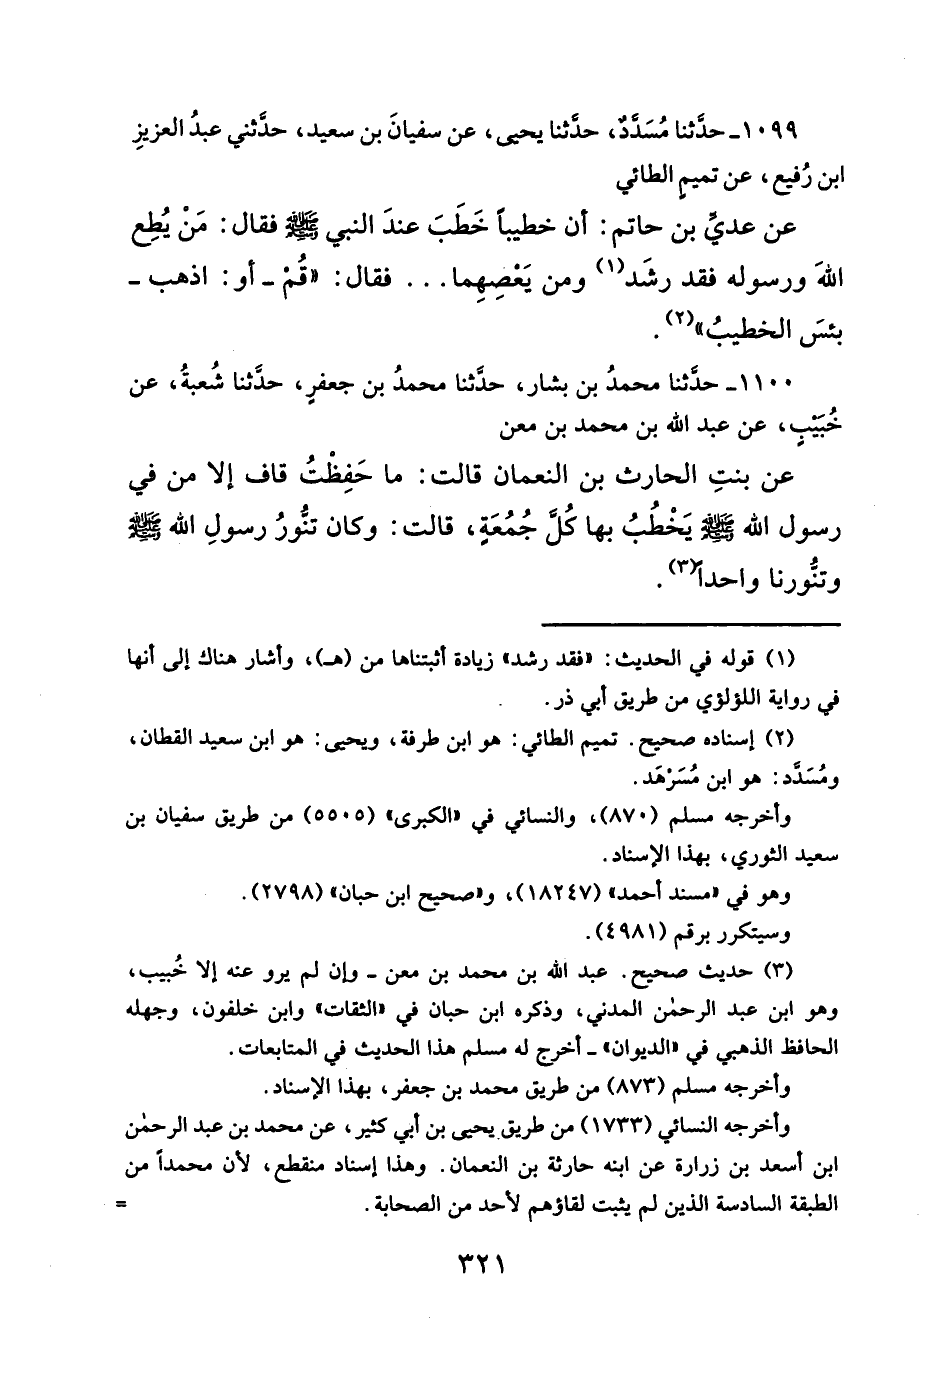 ١٠٩٩ـ حدَّثنا مُسَدَّدٌ، حدَّثنا يحيى، عن سفيانَ بن سعيد، حدَّثني عبدُ العزيزِ
ابن رُفيع، عن تميمٍ الطائي
عن عديِّ بن حاتم: أن خطيباً خَطَبَ عندَ النبي ﷺ فقال: مَنْ يُطِع
اللهَ ورسوله فقد رشَد(١) ومن يَعْصِهِما... فقال: «قُمْ ـ أو: اذهب ـ
بئسَ الخطيبُ»(٢).
١١٠٠ـ حدَّثنا محمدُ بن بشار، حدَّثنا محمدُ بن جعفرٍ، حدَّثنا شُعبةُ، عن
خُبَيْبٍ، عن عبد الله بن محمد بن معن
عن بنتِ الحارث بن النعمان قالت: ما حَفِظْتُ قاف إلا من في
رسول الله ﷺ يَخْطُبُ بها كُلَّ جُمُعَةٍ، قالت: وكان تنُّورُ رسولِ الله ﷺ
وتنُّورنا واحداً(٣).
(١) قوله في الحديث: «فقد رشد» زيادة أثبتناها من (هـ)، وأشار هناك إلى أنها
في رواية اللؤلؤي من طريق أبي ذر.
(٢) إسناده صحيح. تميم الطائي: هو ابن طرفة، ويحيى: هو ابن سعيد القطان،
ومُسَدَّد: هو ابن مُسَرْهَد.
وأخرجه مسلم (٨٧٠)، والنسائي في «الكبرى» (٥٥٠٥) من طريق سفيان بن
سعيد الثوري، بهذا الإسناد.
وهو في «مسند أحمد» (١٨٢٤٧)، و«صحيح ابن حبان» (٢٧٩٨).
وسيتكرر برقم (٤٩٨١).
(٣) حديث صحيح. عبد الله بن محمد بن معن ـ وإن لم يرو عنه إلا خُبيب،
وهو ابن عبد الرحمٰن المدني، وذكره ابن حبان في «الثقات» وابن خلفون، وجهله
الحافظ الذهبي في «الديوان» ـ أخرج له مسلم هذا الحديث في المتابعات.
وأخرجه مسلم (٨٧٣) من طريق محمد بن جعفر، بهذا الإسناد.
وأخرجه النسائي (١٧٣٣) من طريق يحيى بن أبي كثير، عن محمد بن عبد الرحمٰن
ابن أسعد بن زرارة عن ابنه حارثة بن النعمان. وهذا إسناد منقطع، لأن محمداً من
الطبقة السادسة الذين لم يثبت لقاؤهم لأحد من الصحابة. =
٣٢١